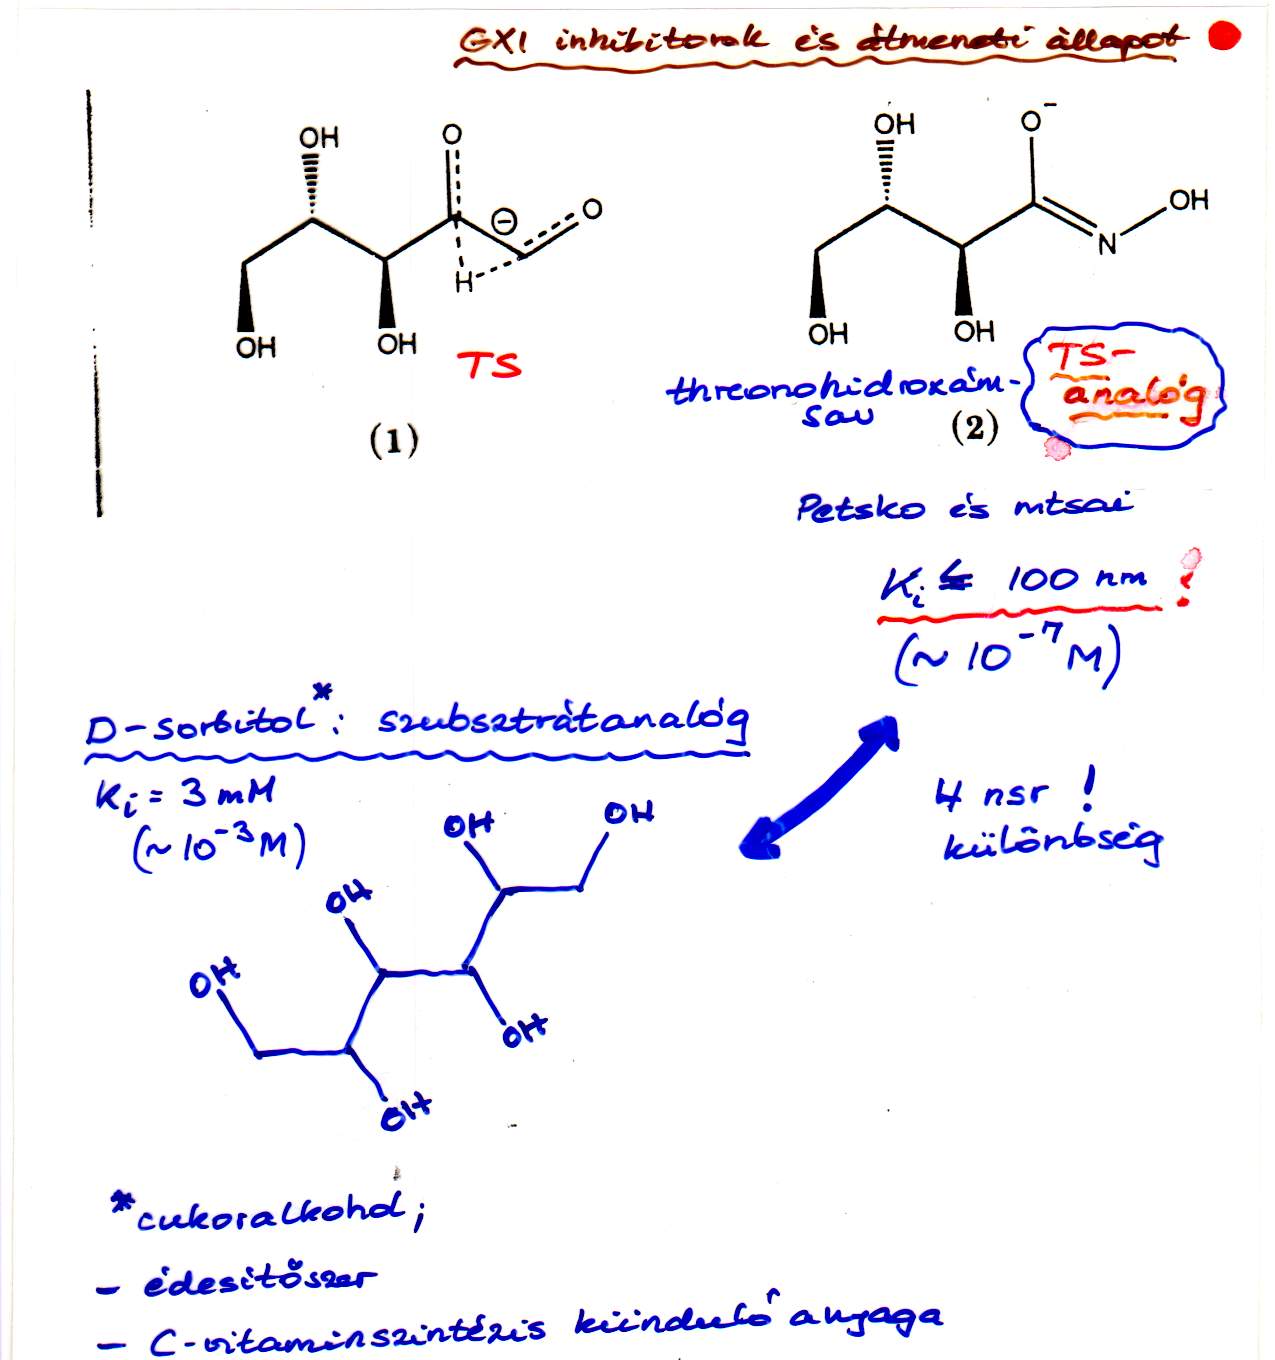 GXI inhibitorok és átmeneti állapot
OH
O
⊖
O
H
OH
OH
TS
(1)
OH
O⁻
OH
N
OH
OH
threonohidroxám-
sav
(2)
TS-
analóg
Petsko és mtsai
Ki ≤ 100 nm !
(~ 10⁻⁷ M)
D-sorbitol*: szubsztrátanalóg
Ki = 3 mM
(~ 10⁻³ M)
4 nsr !
különbség
OH
OH
OH
OH
OH
OH
*cukoralkohol;
- édesítőszer
- C-vitaminszintézis kiinduló anyaga